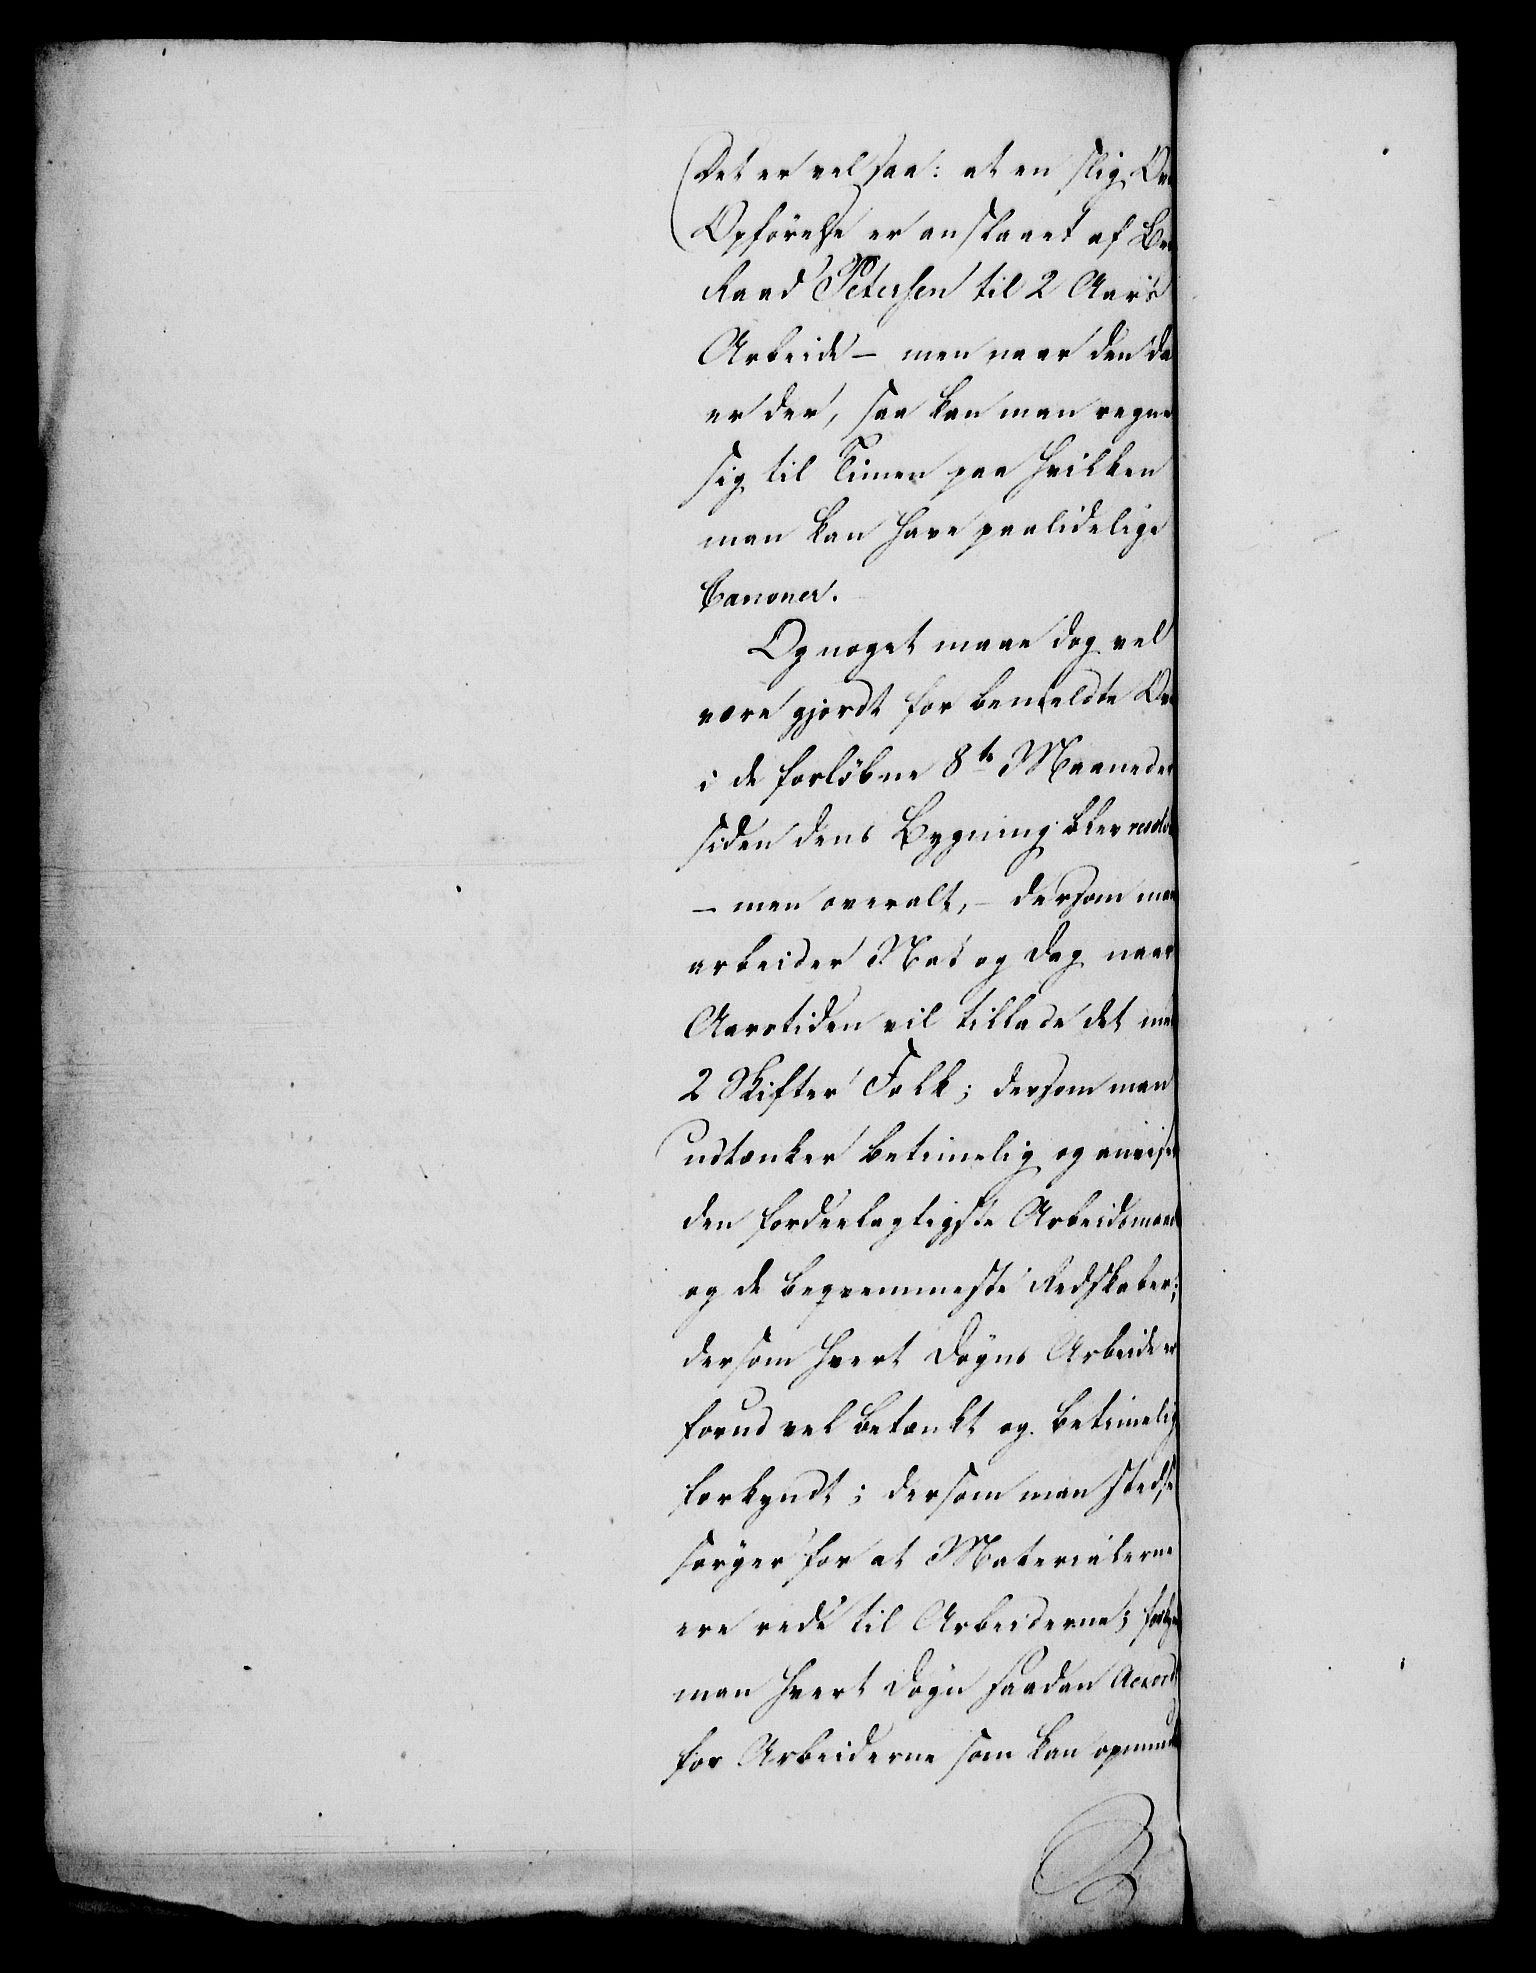 Det er vel saa: at en slig Ov
Opførelse er anslaaet af Be
Raad Petersen til 2 Aars
Arbeide – men naar den da
er der, saa kan man regne
sig til Timen paa hvilken
man kan have paalidelige
Canoner.
Og noget maae dog vel
være gjordt for bemeldte Ov
i de forløbne 8te Maaneder
siden dens Bygning blev resolv
– men overalt, – dersom man
arbeider Nat og Dag naar
Aarstiden vil tillade det med
2 Skifter Folk; dersom man
udtænker betimelig og anviser
den fordeelagtigste Arbeidsmaade
og de beqvemmeste Redskaber;
dersom hvert Døgns Arbeide er
forud vel betænkt og betimelig
forkyndt; dersom man stedse
sørger for at Materialerne
ere rede til Arbeiderne;
man hvert Døgn saadan Accord
for Arbeiderne som kan opmunt